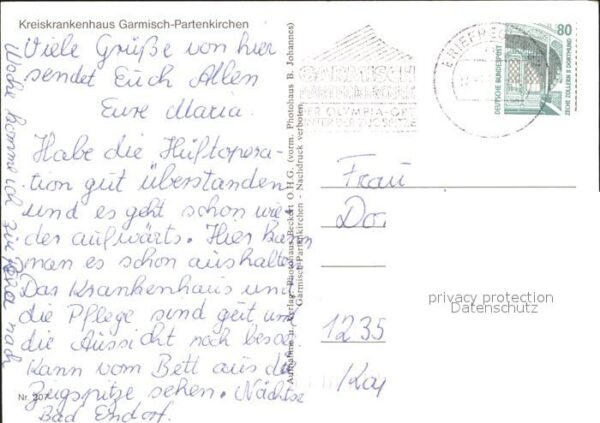 Kreiskrankenhaus Garmisch-Partenkirchen
Viele Grüße von hier
sendet Euch Allen
Eure Maria.
Habe die Hüftopera-
tion gut überstanden
und es geht schon wie-
der aufwärts. Hier kann
man es schon aushalten
Das Krankenhaus und
die Pflege sind gut und
die Aussicht noch besser.
Kann vom Bett aus die
Zugspitze sehen. Nächste
Bad Endorf.
Woche komme ich zur Reha nach
Nr. 207
Aufnahme u. Verlag: Photohaus Beckert O.H.G. (vorm. Photohaus B. Johannes)
Garmisch-Partenkirchen - Nachdruck verboten
GARMISCH
PARTENKIRCHEN
DER OLYMPIA-ORT
80
DEUTSCHE BUNDESPOST
ZECHE ZOLLERN II DORTMUND
Frau
Dor
privacy protection
Datenschutz
1235